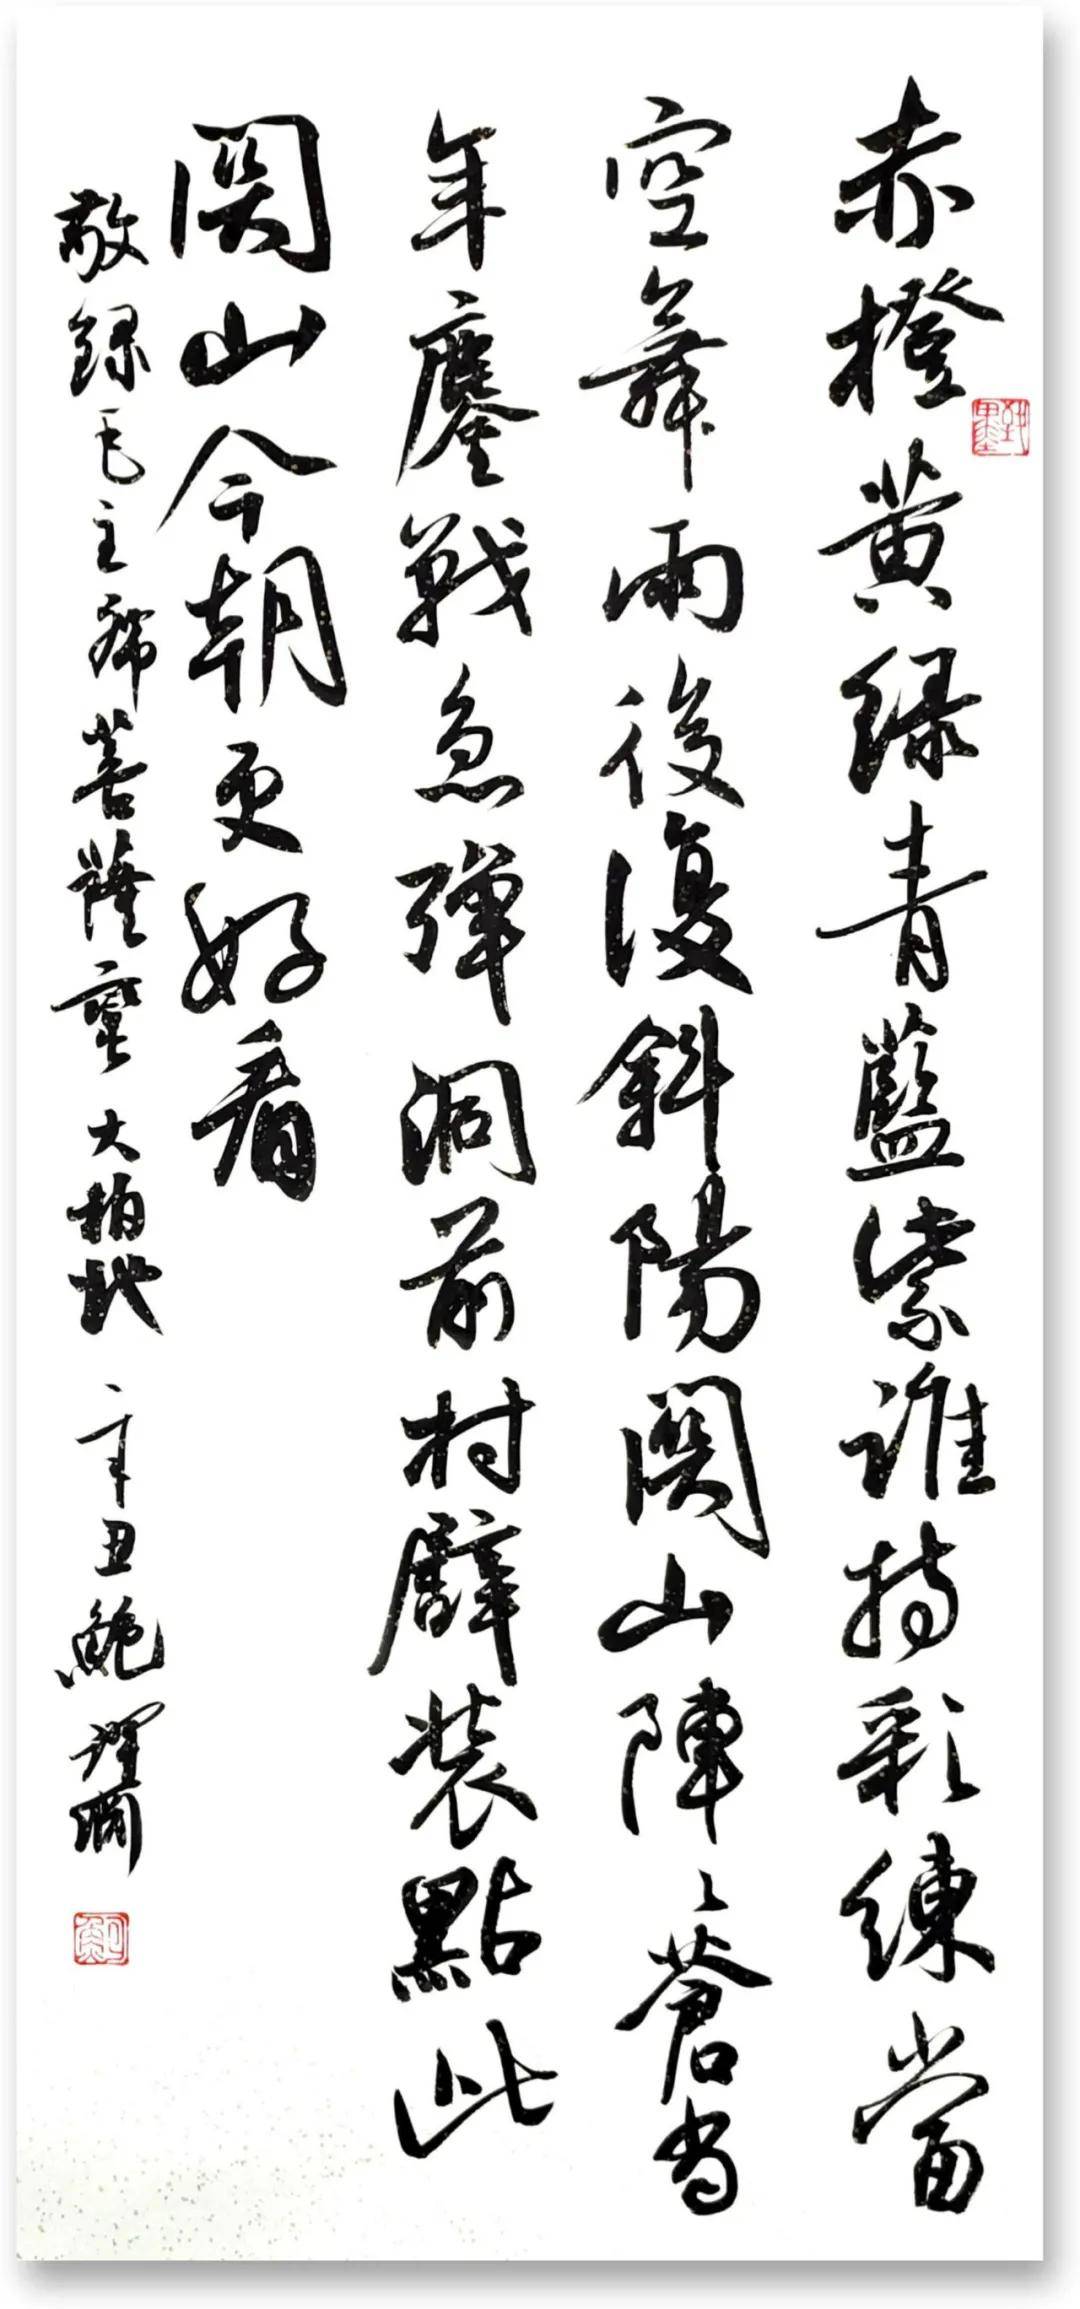 赤橙黄绿青藍紫谁持彩練當
空舞雨後復斜陽関山陣々蒼當
年鏖戰急彈洞前村壁装點此
関山今朝更好看
敬録毛主席菩薩蠻 大柏地 辛丑 鮑